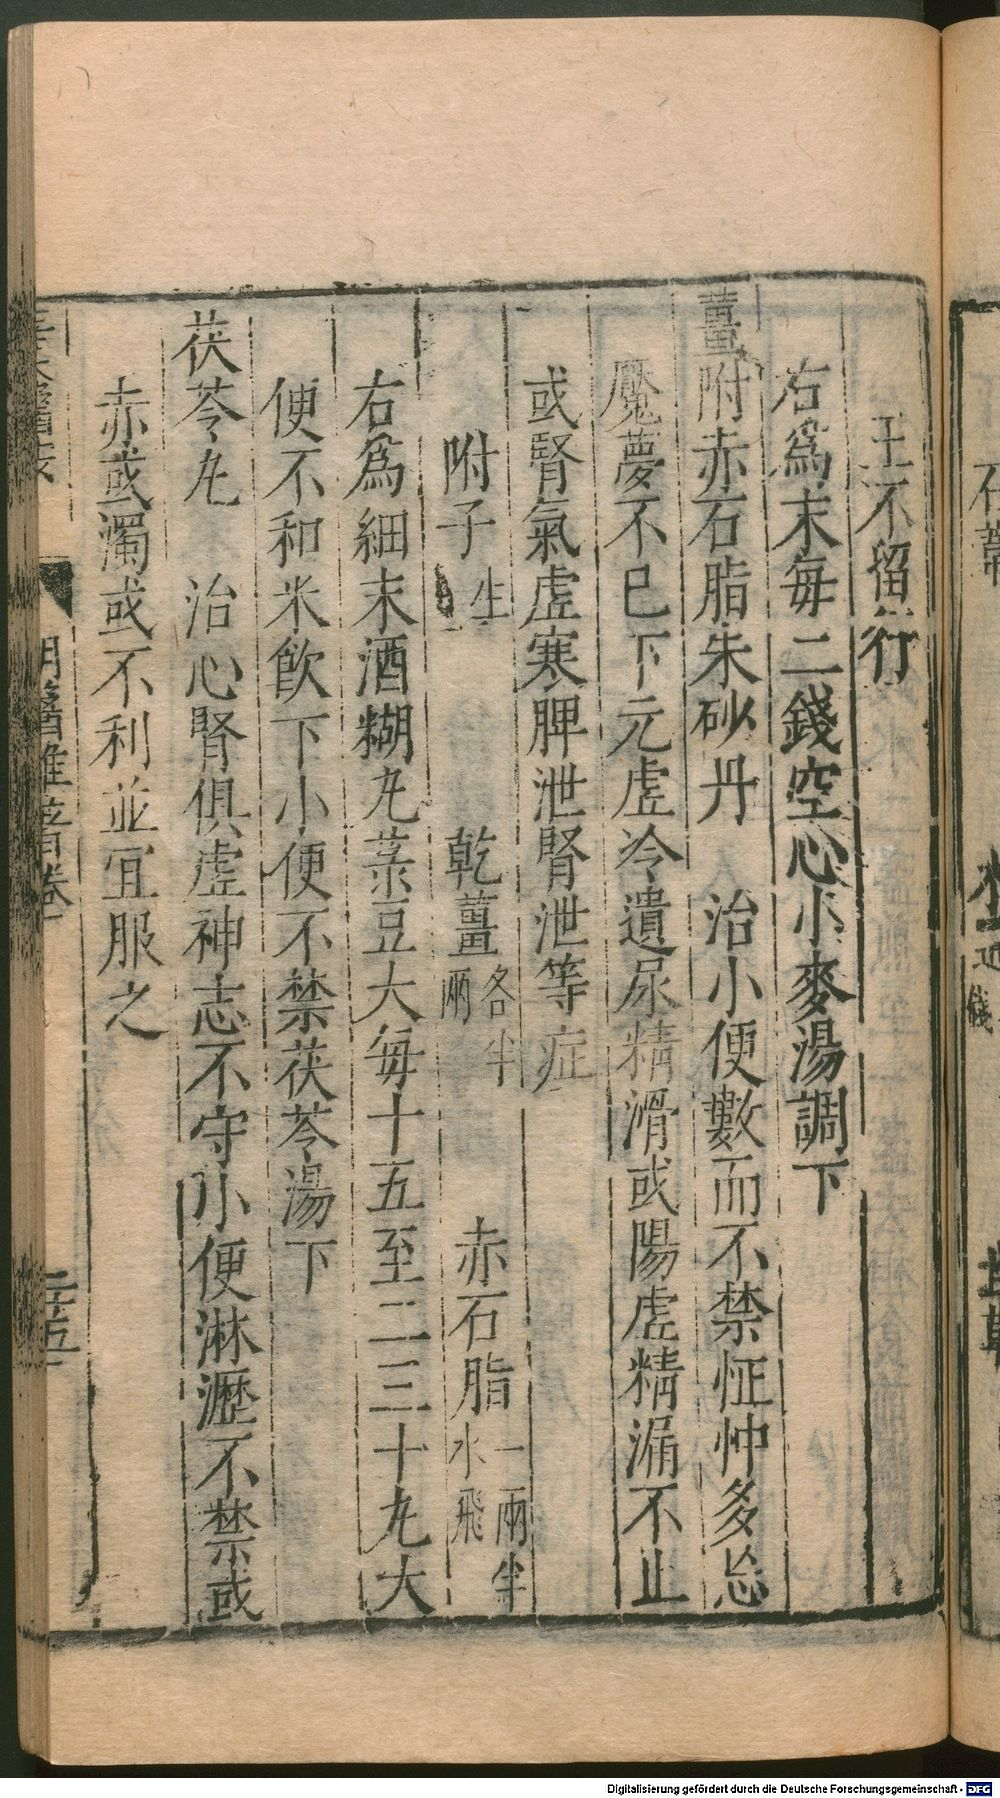 王不留行
右爲末每二錢空心小麥湯調下
薑附赤石脂朱砂丹 治小便數而不禁怔忡多忘
魘夢不已下元虛冷遺尿精滑或陽虛精漏不止
或腎氣虛寒脾泄腎泄等症
附子生 乾薑各半兩 赤石脂一兩半水飛
右爲細末酒糊丸菉豆大每十五至二三十丸大
便不和米飲下小便不禁茯苓湯下
茯苓丸 治心腎俱虛神志不守小便淋瀝不禁或
赤或濁或不利並宜服之
明醫雜著卷
二十五
石韋
Digitalisierung gefördert durch die Deutsche Forschungsgemeinschaft - DFG